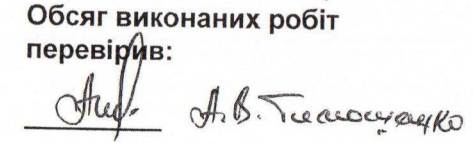 Обсяг виконаних робіт
перевірив:
А.В. Тимощенко